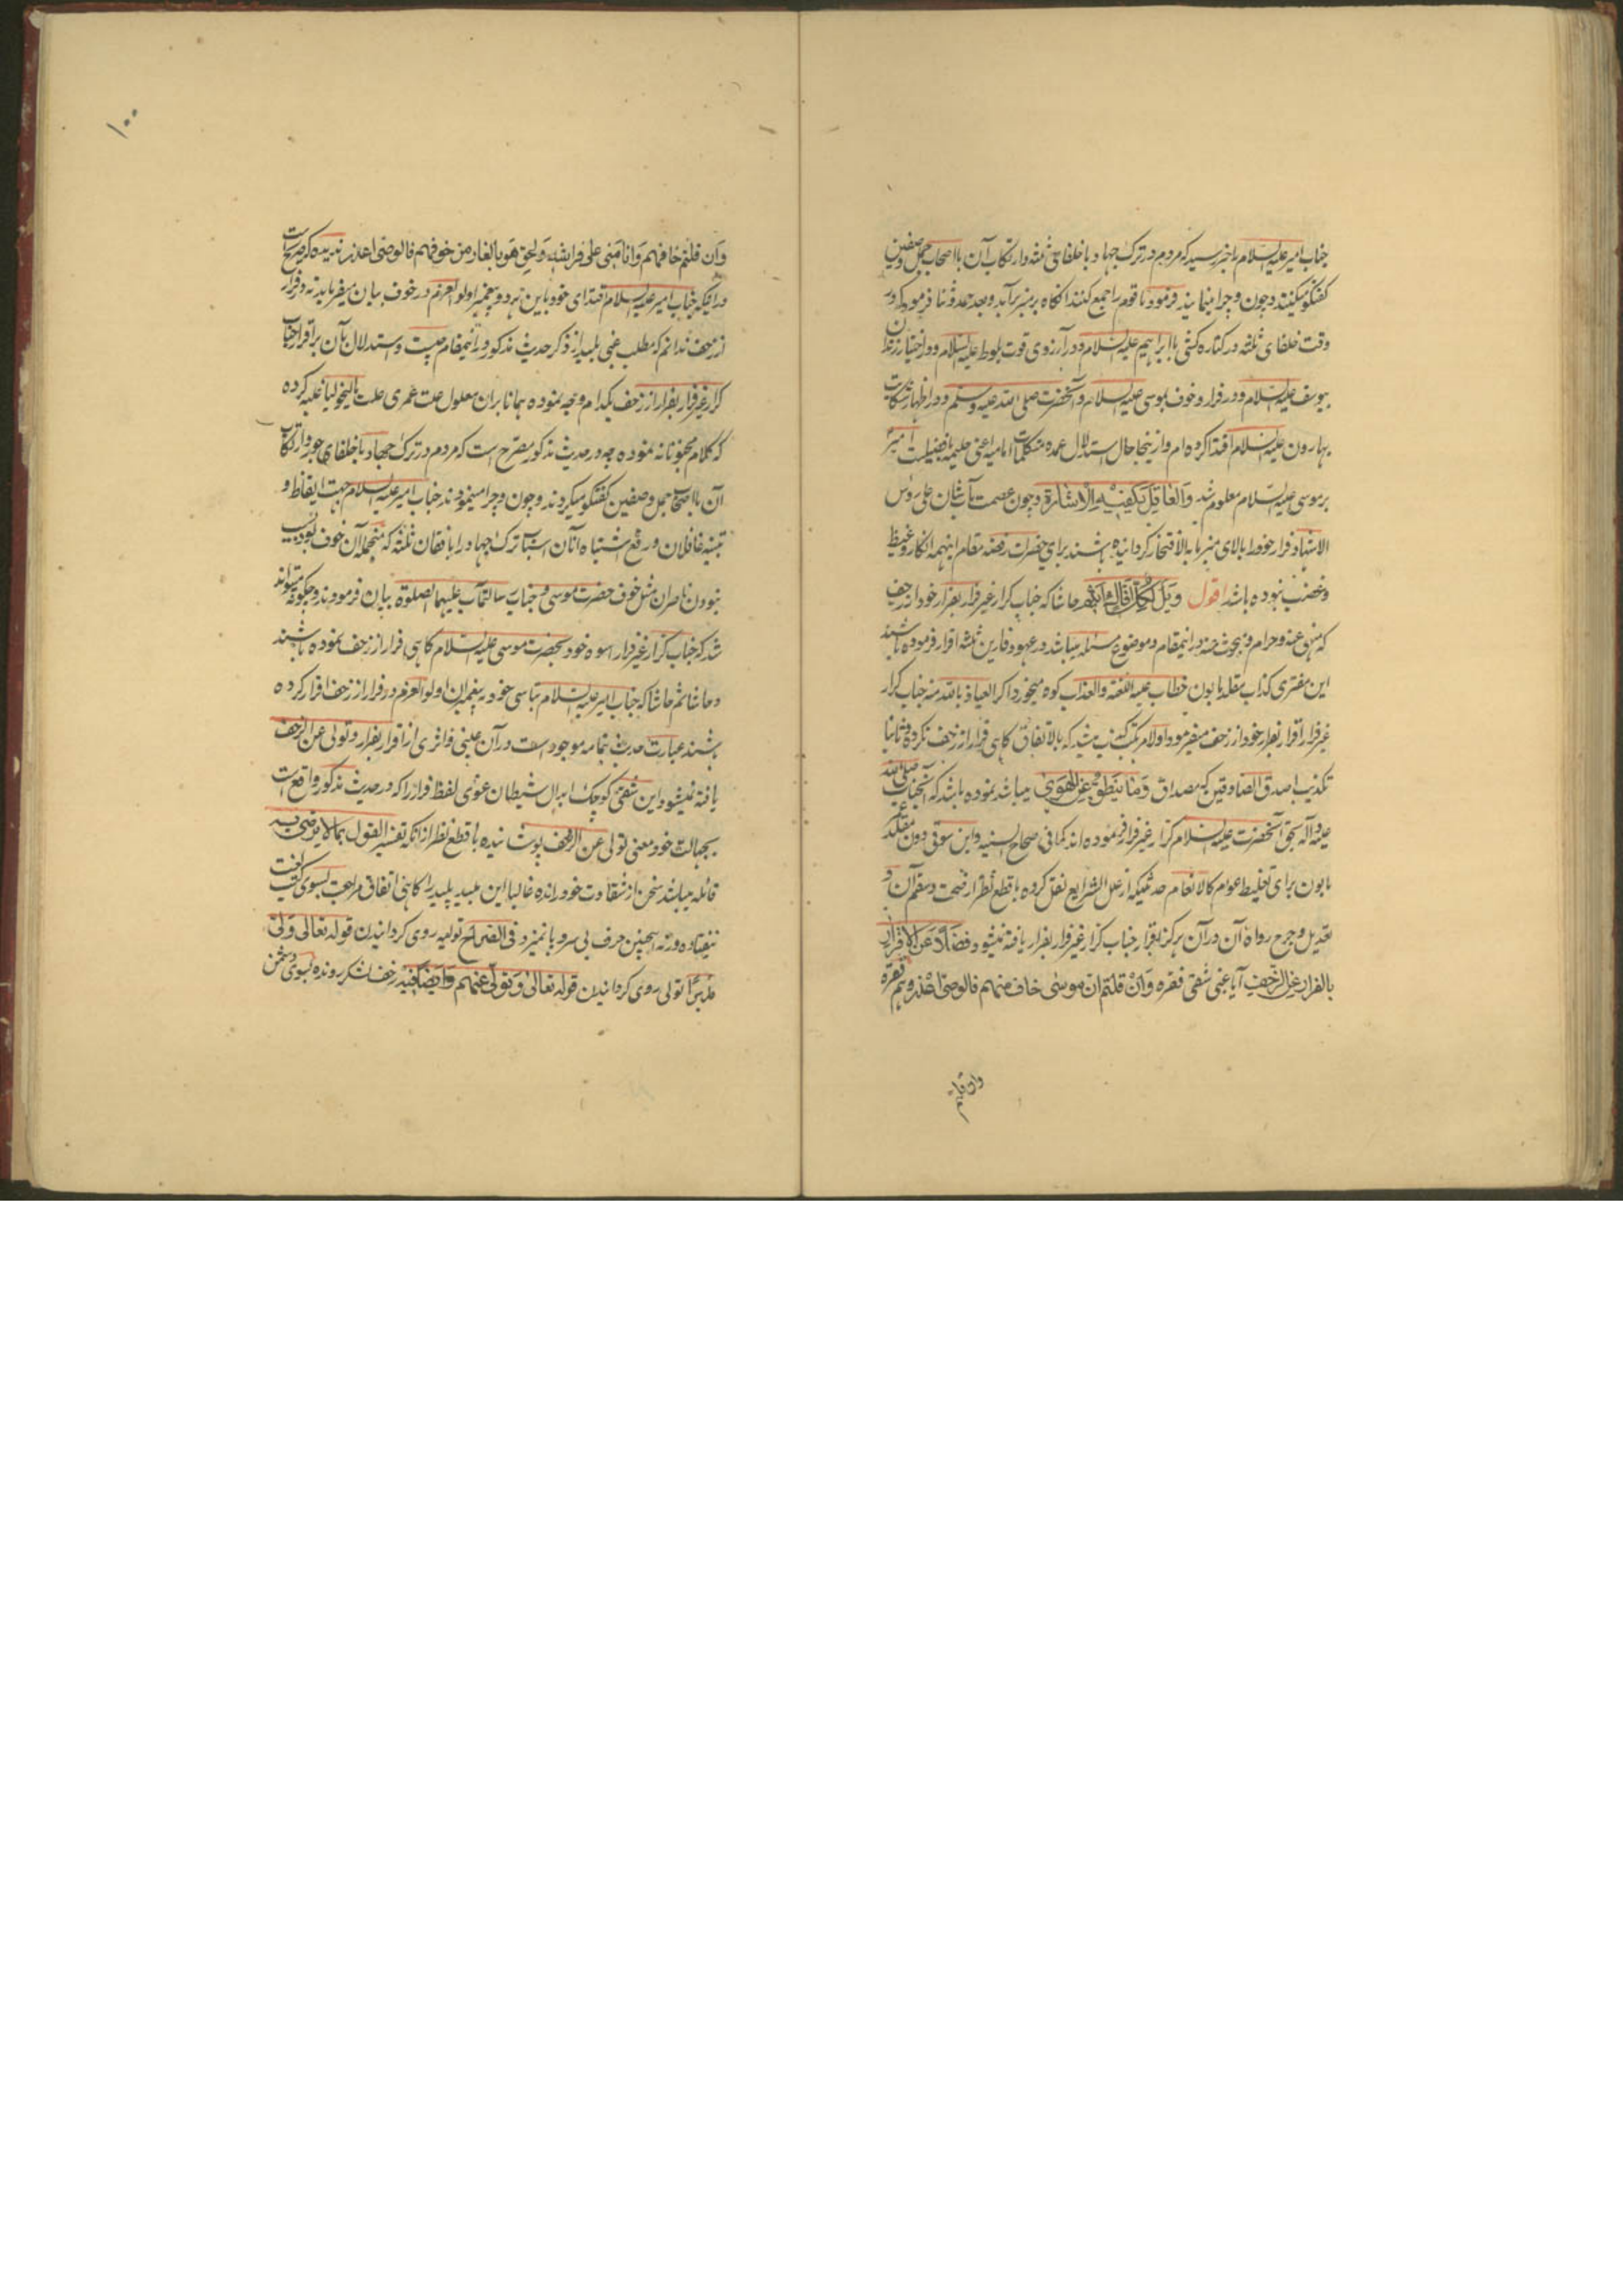 جناب امیر علیه السلام را خبر رسید که مردم در ترک جهاد با خلفای ثلثه و ارتکاب آن با اصحاب جمل و صفین
گفتگو میکنند و چون و چرا مینمایند فرمود تا قوم را جمع کنند انگاه بر منبر برآمد و بعد حمد و ثنا فرمود که در
وقت خلفای ثلثه در کناره کشی با ابراهیم علیه السلام و در آرزوی قوت بلوط علیه السلام و در اختیار زندان
بیوسف علیه السلام و در فرار و خوف بموسی علیه السلام و آنحضرت صلی الله علیه و سلم و در اظهار شکایت
بهارون علیه السلام اقتدا کرده ام و از ینجا حال استدلال عمده متکلمان امامیه اعنی حلیمه بافضیلت امیر
بر موسی علیه السلام معلوم شد والعاقل یکفیه الاشارة و چون عصمت مآب شان علی رؤس
الاشهاد فرار خود را بالای منبر ما به الافتخار گردانیده باشند برای حضرات رفضه مقام اینهمه انکار و غیظ
و غضب نبوده باشد اقول ویل لکل افاک اثیم حاشا که جناب کرار غیر فرار بفرار خود از زحف
که منهی عنه و حرام و مبحوث عنه در اینمقام و موضوع مسئله میباشد در عهود فارین ثلثه اقرار فرموده باشند
این مفتری کذاب مقلد بابون خطاب علیه اللعنه والعذاب کوه میخورد اگر العیاذ بالله منه جناب کرار
غیر فرار اقرار بفرار خود از زحف میفرمود اولا مرتکب کذب میشد که بالاتفاق گاهی فرار از زحف نکرده و ثانیا
تکذیب اصدق الصادقین که مصداق و ما ینطق عن الهوی میباشد نموده باشد که آنجناب صلی الله
علیه و آله بحق آنحضرت علیه السلام کرار غیر فرار فرموده اند کما فی صحاح السنیه و ابن سوقی دون مقلد
بابون برای تغلیط عوام کالانعام حدثیکه از علل الشرایع نقل کرده با قطع نظر از صحت و سقم آن و
تعدیل و جرح رواة آن در آن هرگز اقرار جناب کرار غیر فرار بفرار یافته نمیشود فضلا عن الاقرار
بالفرار عن الزحف آیا غبی شقی فقره وان قلتم ان موسی خاف منهم فالوصی اعذر و هم فقره
وان قلتم
۱۰۰
وان قلتم خافهم وانا منی علی فراشه ولحق هو بالغار من خوفهم فالوصی اعذر ندیده که صریح است
در اینکه جناب امیر علیه السلام اقتدای خود باین هر دو پیغمبر اولو العزم در خوف بیان میفرماید نه در فرار
از زحف ندانم که مطلب غبی بلید از ذکر حدیث مذکور در اینمقام چیست و استدلال بآن بر اقرار جناب
کرار غیر فرار بفرار از زحف بکدام وجه نموده همانا بران معلول علت عمری علت مالیخولیا غلبه کرده
که کلام مجنونانه نموده چه در حدیث مذکور مصرح است که مردم در ترک جهاد با خلفای جور و ارتکاب
آن با اصحاب جمل و صفین گفتگو میکردند و چون و چرا مینمودند جناب امیر علیه السلام جهت ایقاظ و
تنبیه غافلان و رفع اشتباه آنان اسباب ترک جهاد را با فقان ثلثه که منجمله آن خوف بود بسبب
نبودن ناصران مثل خوف حضرت موسی و جناب رسالتمآب علیهما الصلوة بیان فرمودند و چگونه میتواند
شد که جناب کرار غیر فرار اسوه خود بحضرت موسی علیه السلام گاهی فرار از زحف نموده باشند
و حاشا ثم حاشا که جناب امیر علیه السلام بتاسی خود به پیغمبران اولو العزم در فرار از زحف اقرار کرده
باشند عبارت حدیث بتمامه موجود است در آن عینی و اثری از اقرار بفرار و تولی عن الزحف
یافته نمیشود این شقی کوچک ابدال شیطان عوٰی لفظ فرار را که در حدیث مذکور واقع است
بجهالت خود معنی تولی عن الزحف پوشانیده با قطع نظر از انکه تفسیر القول بما لا یرضی به
قائله میباشد سخن از شقاوت خود رانده غالبا این بلید پلید را گاهی اتفاق مراجعت بسوی کتب لغت
نیفتاده ورنه اینچنین حرف بی سر و پا نمیزد فی الصراح تولیه روی گردانیدن قوله تعالی ولی
مدبرا تولی روی گردانیدن قوله تعالی وتولی عنهم و ایضا فیه زحف لشکر رونده بسوی دشمن